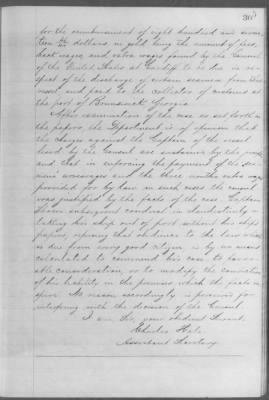 for the reimbursement of eight hundred and seven-
dollars in gold being the amount of
wages and extra wages found by the Consul
of the United States at Cardiff to be due in re-
spect of the discharge of certain seamen from that
vessel and paid to the collector of customs at
the port of Brunswick Georgia
After examination of the case as set forth in
the papers, the Department is of opinion that
the charges against the Captain of the vessel
by the Consul are by the
and that in enforcing the payment of the sea-
men's wages and the three months extra
provided for by law in such cases the consul
was justified by the facts of the case. Captain
conduct in clandestinely
taking her ship out of port without the ship's
papers, refusing that to the laws which
is due from every good citizen is by no means
calculated to commend his case to favor-
able consideration, or to modify the conviction
of his liability in the premises which the facts in-
spire. No reason accordingly is perceived for
interfering with the decision of the Consul
I am, Sir, your obedient Servant,
Charles Hale
Assistant Secretary.